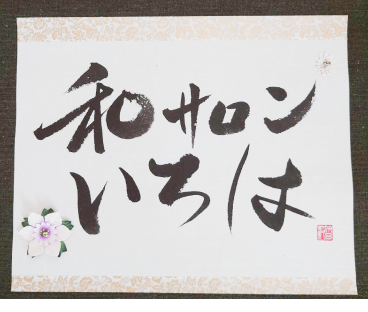 和サロン
いろは